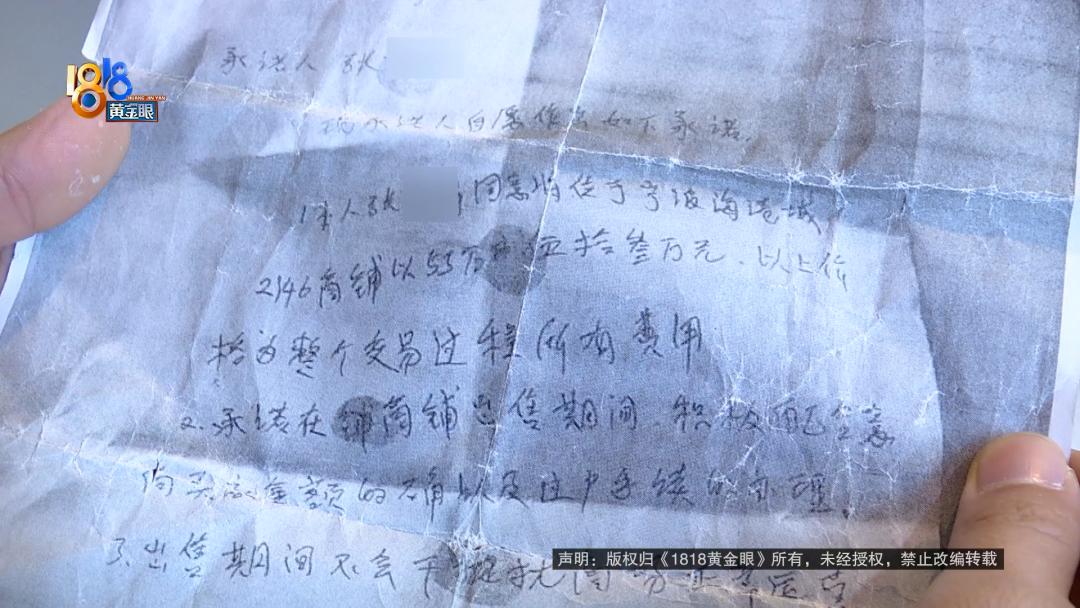 1818
HUANG JIN YAN
黄金眼
承诺人 张
现承诺人自愿作出如下承诺,
1本人张 同意将位于宁波海港城
2146商铺以53万 伍拾叁万元、以上价
格为整个交易过程所有费用
2.承诺在 商铺出售期间、积极配合意
向买 金额的 以及过户手续的办理.
3.出售期间不会干扰商
声明：版权归《1818黄金眼》所有，未经授权，禁止改编转载